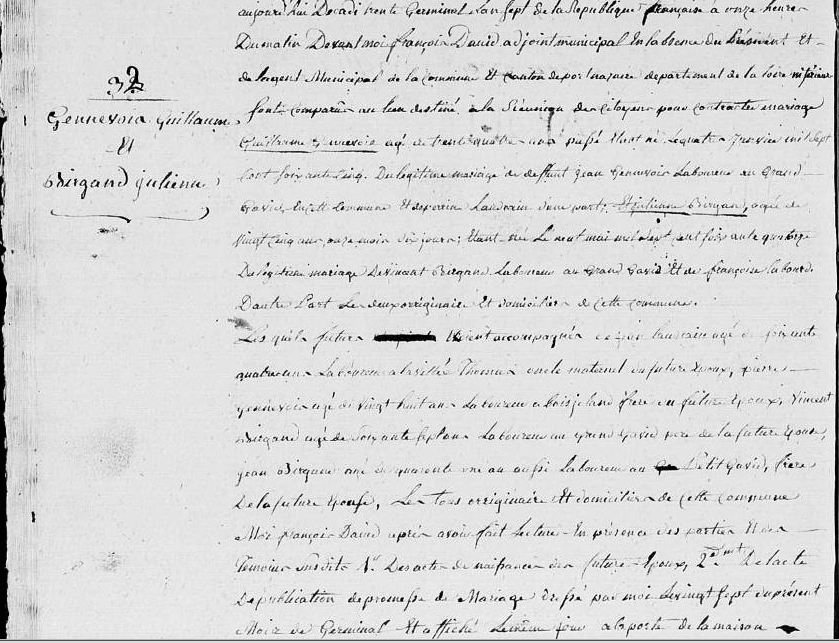 aujourd'hui Decadi trente Germinal L'an Sept de la Republique française a onze heures
Du matin Devant moi françois David adjoint municipal En labsence du President Et
de lagent Municipal de la Commune Et canton de port nazaire departement de la loire inferieure
sont comparûs au lieu destiné a la Réunion des Citoyens pour contracter mariage
32
Gennevois Guillaume
Et
Birgand julienne
Guillaume Gennevois agé de trente quatre ans passé Etant né le quatre janvier mil sept
Cent soixante cinq. Du legitime mariage de deffunt jean Gennevois Laboureur au Grand
Gavid, En cette Commune Et de perrine Laudrain d'une part; Et julienne Birgand, agée de
vingt cinq ans onze mois six jours; Etant née Le neuf mai mil sept cent soixante quatorze
De legitime mariage De vincent Birgand Laboureur au Grand Gavid Et de françoise
D'autre Part Les deux originaire Et domiciliés de cette commune.
Les quels futurs Etoient accompagnés de jean Laudrain agé de soixante
quatre ans Laboureur a la villée Thomas oncle maternel du future Epoux, pierre
gennevois agé de vingt huit ans Laboureur a frere du future Epoux, Vincent
Birgand agé de soixante sept ans Laboureur au Grand Gavid pere de la future Epouse,
jean Birgand agé de quarante un an aussi Laboureur au Petit Gavid, frere
De la future Epouse, Les tous originaire Et domiciliés de cette Commune
Moi françois David aprés avoir fait Lecture En presence des parties Et des
Temoins susdits 1.° Des actes de naissance des futurs Epoux, 2.emt De lacte
De publication de promesse de Mariage dressé par moi Le vingt sept du présent
Mois de Germinal Et affiché Le même jour a la porte de la maison